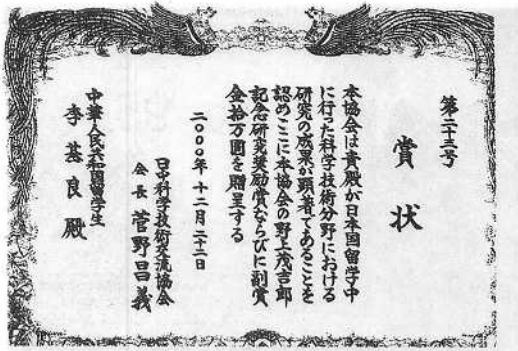 第二十三号
賞状
本協会は貴殿が日本国留学中
に行った科学技術分野における
研究の成果が顕著であることを
認めここに本協会の野上茂吉郎
記念研究奨励賞ならびに副賞
金拾万圓を贈呈する
二〇〇〇年十二月二十二日
日中科学技術交流協会
会長 菅野昌義
中華人民共和国留学生
李基良殿